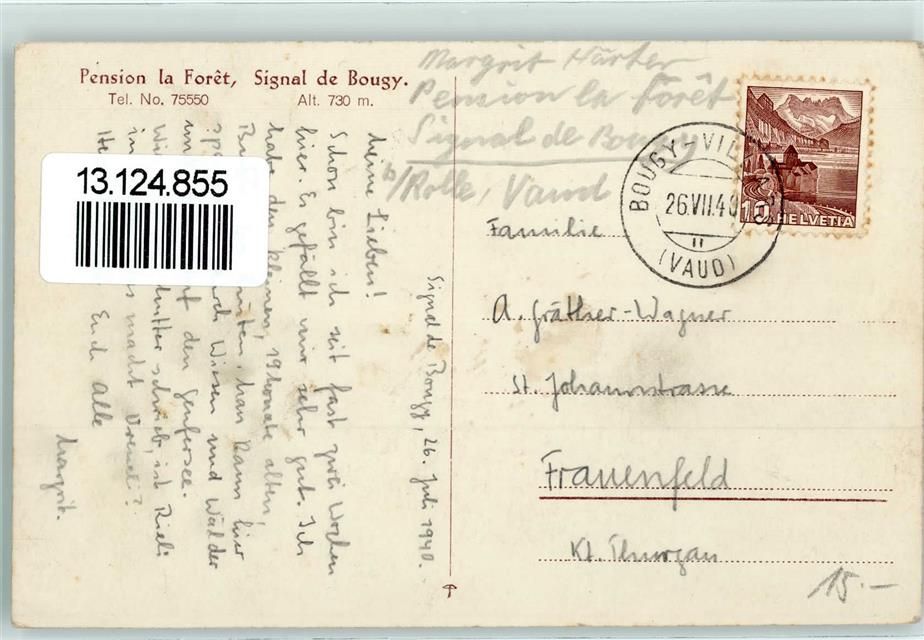 Pension la Forêt, Signal de Bougy.
Tel. No. 75550 Alt. 730 m.
Margrit Härter
Pension la Forêt
Signal de Bougy
b/Rolle, Vaud
BOUGY-VILL
26.VII.40
(VAUD)
10 HELVETIA
13.124.855
Signal de Bougy, 26. Juli 1940.
Meine Lieben!
Schon bin ich seit fast zwei Wochen
hier. Es gefällt mir sehr gut. Ich
habe den kleinen, 19 Monate alten,
Bu Man kann hier
Wiesen und Wälder
un den Genfersee.
Wi Mutter schrieb, ist Rieli
in s macht Vreneli?
He Euch Alle
Margrit.
Familie
A. Gräther-Wagner
St. Johannstrasse
Frauenfeld
Kt. Thurgau
15.-